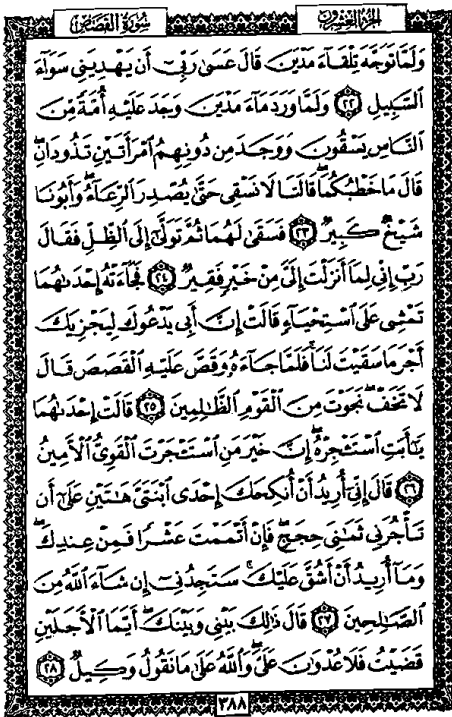 الجزء العشرون سورة القصص
وَلَمَّا تَوَجَّهَ تِلْقَآءَ مَدْيَنَ قَالَ عَسَىٰ رَبِّىٓ أَن يَهْدِيَنِى سَوَآءَ
ٱلسَّبِيلِ ٢٢ وَلَمَّا وَرَدَ مَآءَ مَدْيَنَ وَجَدَ عَلَيْهِ أُمَّةً مِّنَ
ٱلنَّاسِ يَسْقُونَ وَوَجَدَ مِن دُونِهِمُ ٱمْرَأَتَيْنِ تَذُودَانِۖ
قَالَ مَا خَطْبُكُمَاۖ قَالَتَا لَا نَسْقِى حَتَّىٰ يُصْدِرَ ٱلرِّعَآءُۖ وَأَبُونَا
شَيْخٌ كَبِيرٌ ٢٣ فَسَقَىٰ لَهُمَا ثُمَّ تَوَلَّىٰٓ إِلَى ٱلظِّلِّ فَقَالَ
رَبِّ إِنِّى لِمَآ أَنزَلْتَ إِلَىَّ مِنْ خَيْرٍ فَقِيرٌ ٢٤ فَجَآءَتْهُ إِحْدَىٰهُمَا
تَمْشِى عَلَى ٱسْتِحْيَآءٍ قَالَتْ إِنَّ أَبِى يَدْعُوكَ لِيَجْزِيَكَ
أَجْرَ مَا سَقَيْتَ لَنَاۚ فَلَمَّا جَآءَهُۥ وَقَصَّ عَلَيْهِ ٱلْقَصَصَ قَالَ
لَا تَخَفْۖ نَجَوْتَ مِنَ ٱلْقَوْمِ ٱلظَّٰلِمِينَ ٢٥ قَالَتْ إِحْدَىٰهُمَا
يَٰٓأَبَتِ ٱسْتَـْٔجِرْهُۖ إِنَّ خَيْرَ مَنِ ٱسْتَـْٔجَرْتَ ٱلْقَوِىُّ ٱلْأَمِينُ
٢٦ قَالَ إِنِّىٓ أُرِيدُ أَنْ أُنكِحَكَ إِحْدَى ٱبْنَتَىَّ هَٰتَيْنِ عَلَىٰٓ أَن
تَأْجُرَنِى ثَمَٰنِىَ حِجَجٍۖ فَإِنْ أَتْمَمْتَ عَشْرًا فَمِنْ عِندِكَۖ
وَمَآ أُرِيدُ أَنْ أَشُقَّ عَلَيْكَۚ سَتَجِدُنِىٓ إِن شَآءَ ٱللَّهُ مِنَ
ٱلصَّٰلِحِينَ ٢٧ قَالَ ذَٰلِكَ بَيْنِى وَبَيْنَكَۖ أَيَّمَا ٱلْأَجَلَيْنِ
قَضَيْتُ فَلَا عُدْوَٰنَ عَلَىَّۖ وَٱللَّهُ عَلَىٰ مَا نَقُولُ وَكِيلٌ ٢٨
٣٨٨